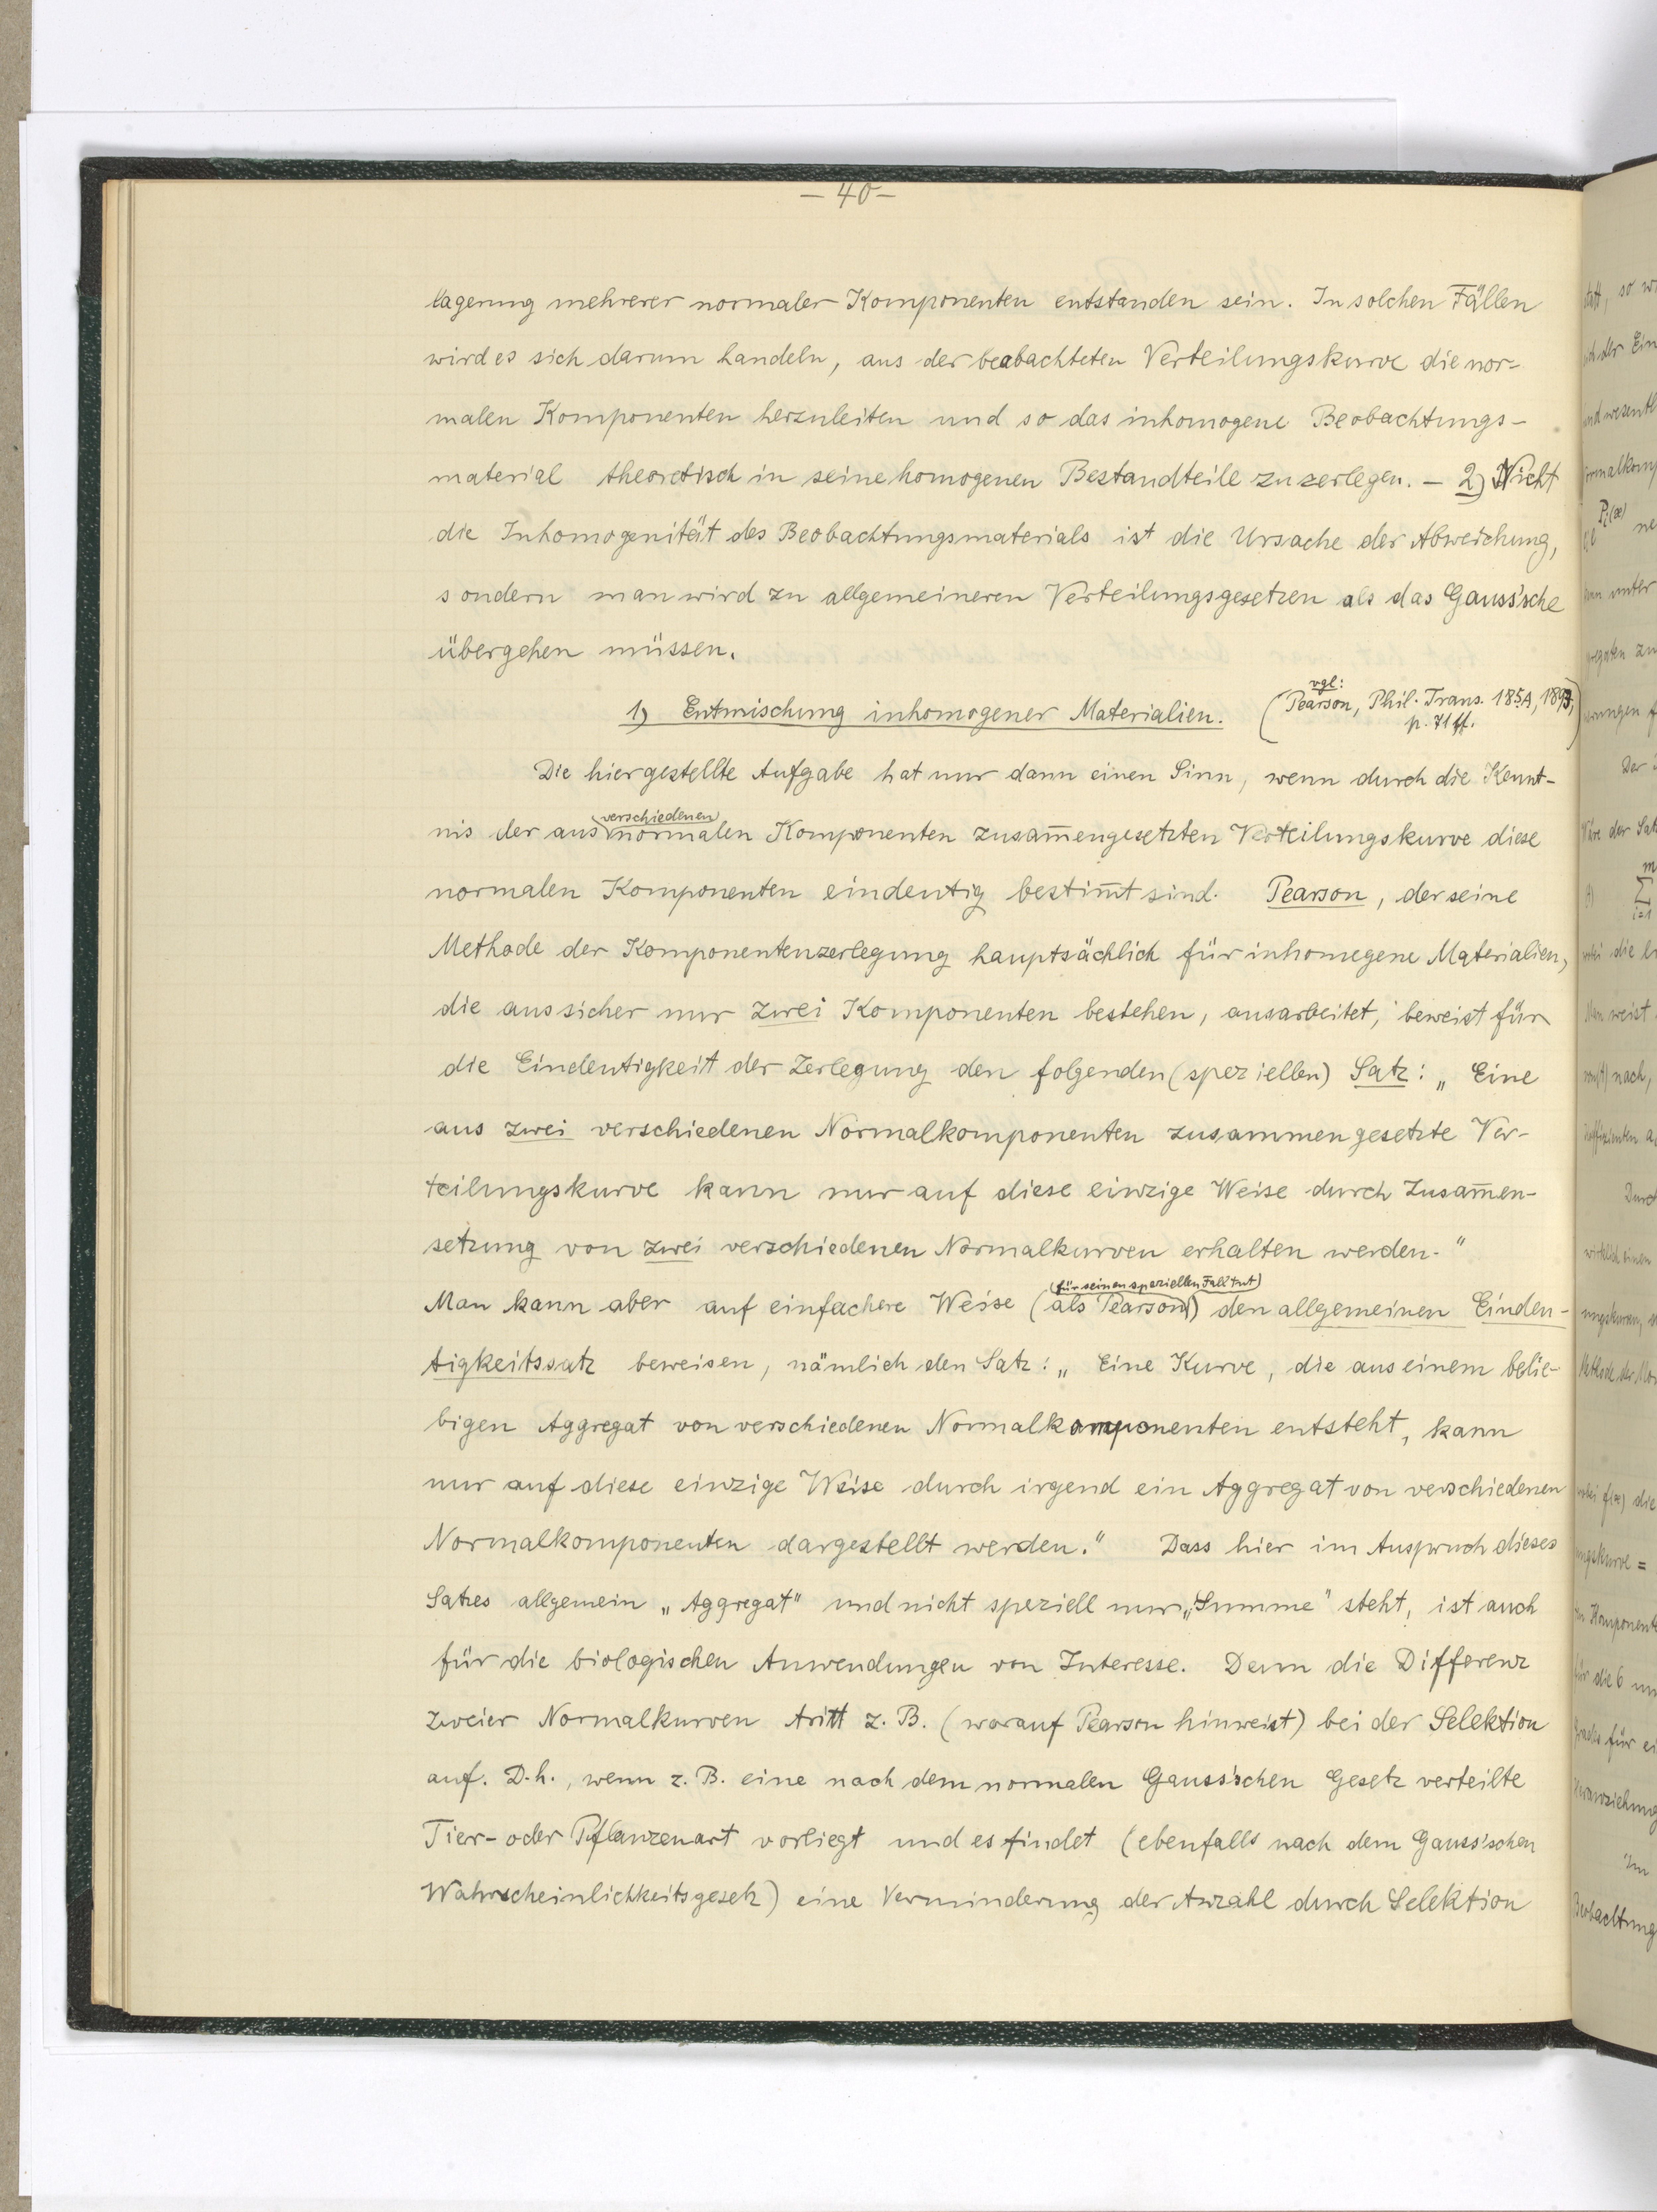 — 40 —
lagerung mehrerer normaler Komponenten entstanden sein. In solchen Fällen
wird es sich darum handeln, aus der beobachteten Verteilungskurve die nor-
malen Komponenten herzuleiten und so das inhomogene Beobachtungs-
material theoretisch in seine homogenen Bestandteile zu zerlegen. — 2) Nicht
die Inhomogenität des Beobachtungsmaterials ist die Ursache der Abweichung,
sondern man wird zu allgemeineren Verteilungsgesetzen als das Gauss'sche
übergehen müssen.
1) Entmischung inhomogener Materialien.
(vgl: Pearson, Phil. Trans. 185A,
p. 71 ff.)
Die hier gestellte Aufgabe hat nur dann einen Sinn, wenn durch die Kennt-
nis der aus verschiedenen normalen Komponenten zusam̅engesetzten Verteilungskurve diese
normalen Komponenten eindeutig bestim̅t sind. Pearson, der seine
Methode der Komponentenzerlegung hauptsächlich für inhomegene Materialien,
die aus sicher nur zwei Komponenten bestehen, ausarbeitet, beweist für
die Eindeutigkeit der Zerlegung den folgenden (speziellen) Satz: „Eine
aus zwei verschiedenen Normalkomponenten zusammengesetzte Ver-
teilungskurve kann nur auf diese einzige Weise durch Zusam̅en-
setzung von zwei verschiedenen Normalkurven erhalten werden."
Man kann aber auf einfachere Weise (als Pearson (für seinen speziellen Fall tut)) den allgemeinen Eindeu-
tigkeitssatz beweisen, nämlich den Satz: „Eine Kurve, die aus einem belie-
bigen Aggregat von verschiedenen Normalkomponenten entsteht, kann
nur auf diese einzige Weise durch irgend ein Aggregat von verschiedenen
Normalkomponenten dargestellt werden." Dass hier im Ausspruch dieses
Satzes allgemein „Aggregat" und nicht speziell nur „Summe" steht, ist auch
für die biologischen Anwendungen von Interesse. Denn die Differenz
zweier Normalkurven tritt z. B. (worauf Pearson hinweist) bei der Selektion
auf. D.h., wenn z. B. eine nach dem normalen Gauss'schen Gesetz verteilte
Tier- oder Pflanzenart vorliegt und es findet (ebenfalls nach dem Gauss'schen
Wahrscheinlichkeitsgesetz) eine Verminderung der Anzahl durch Selektion